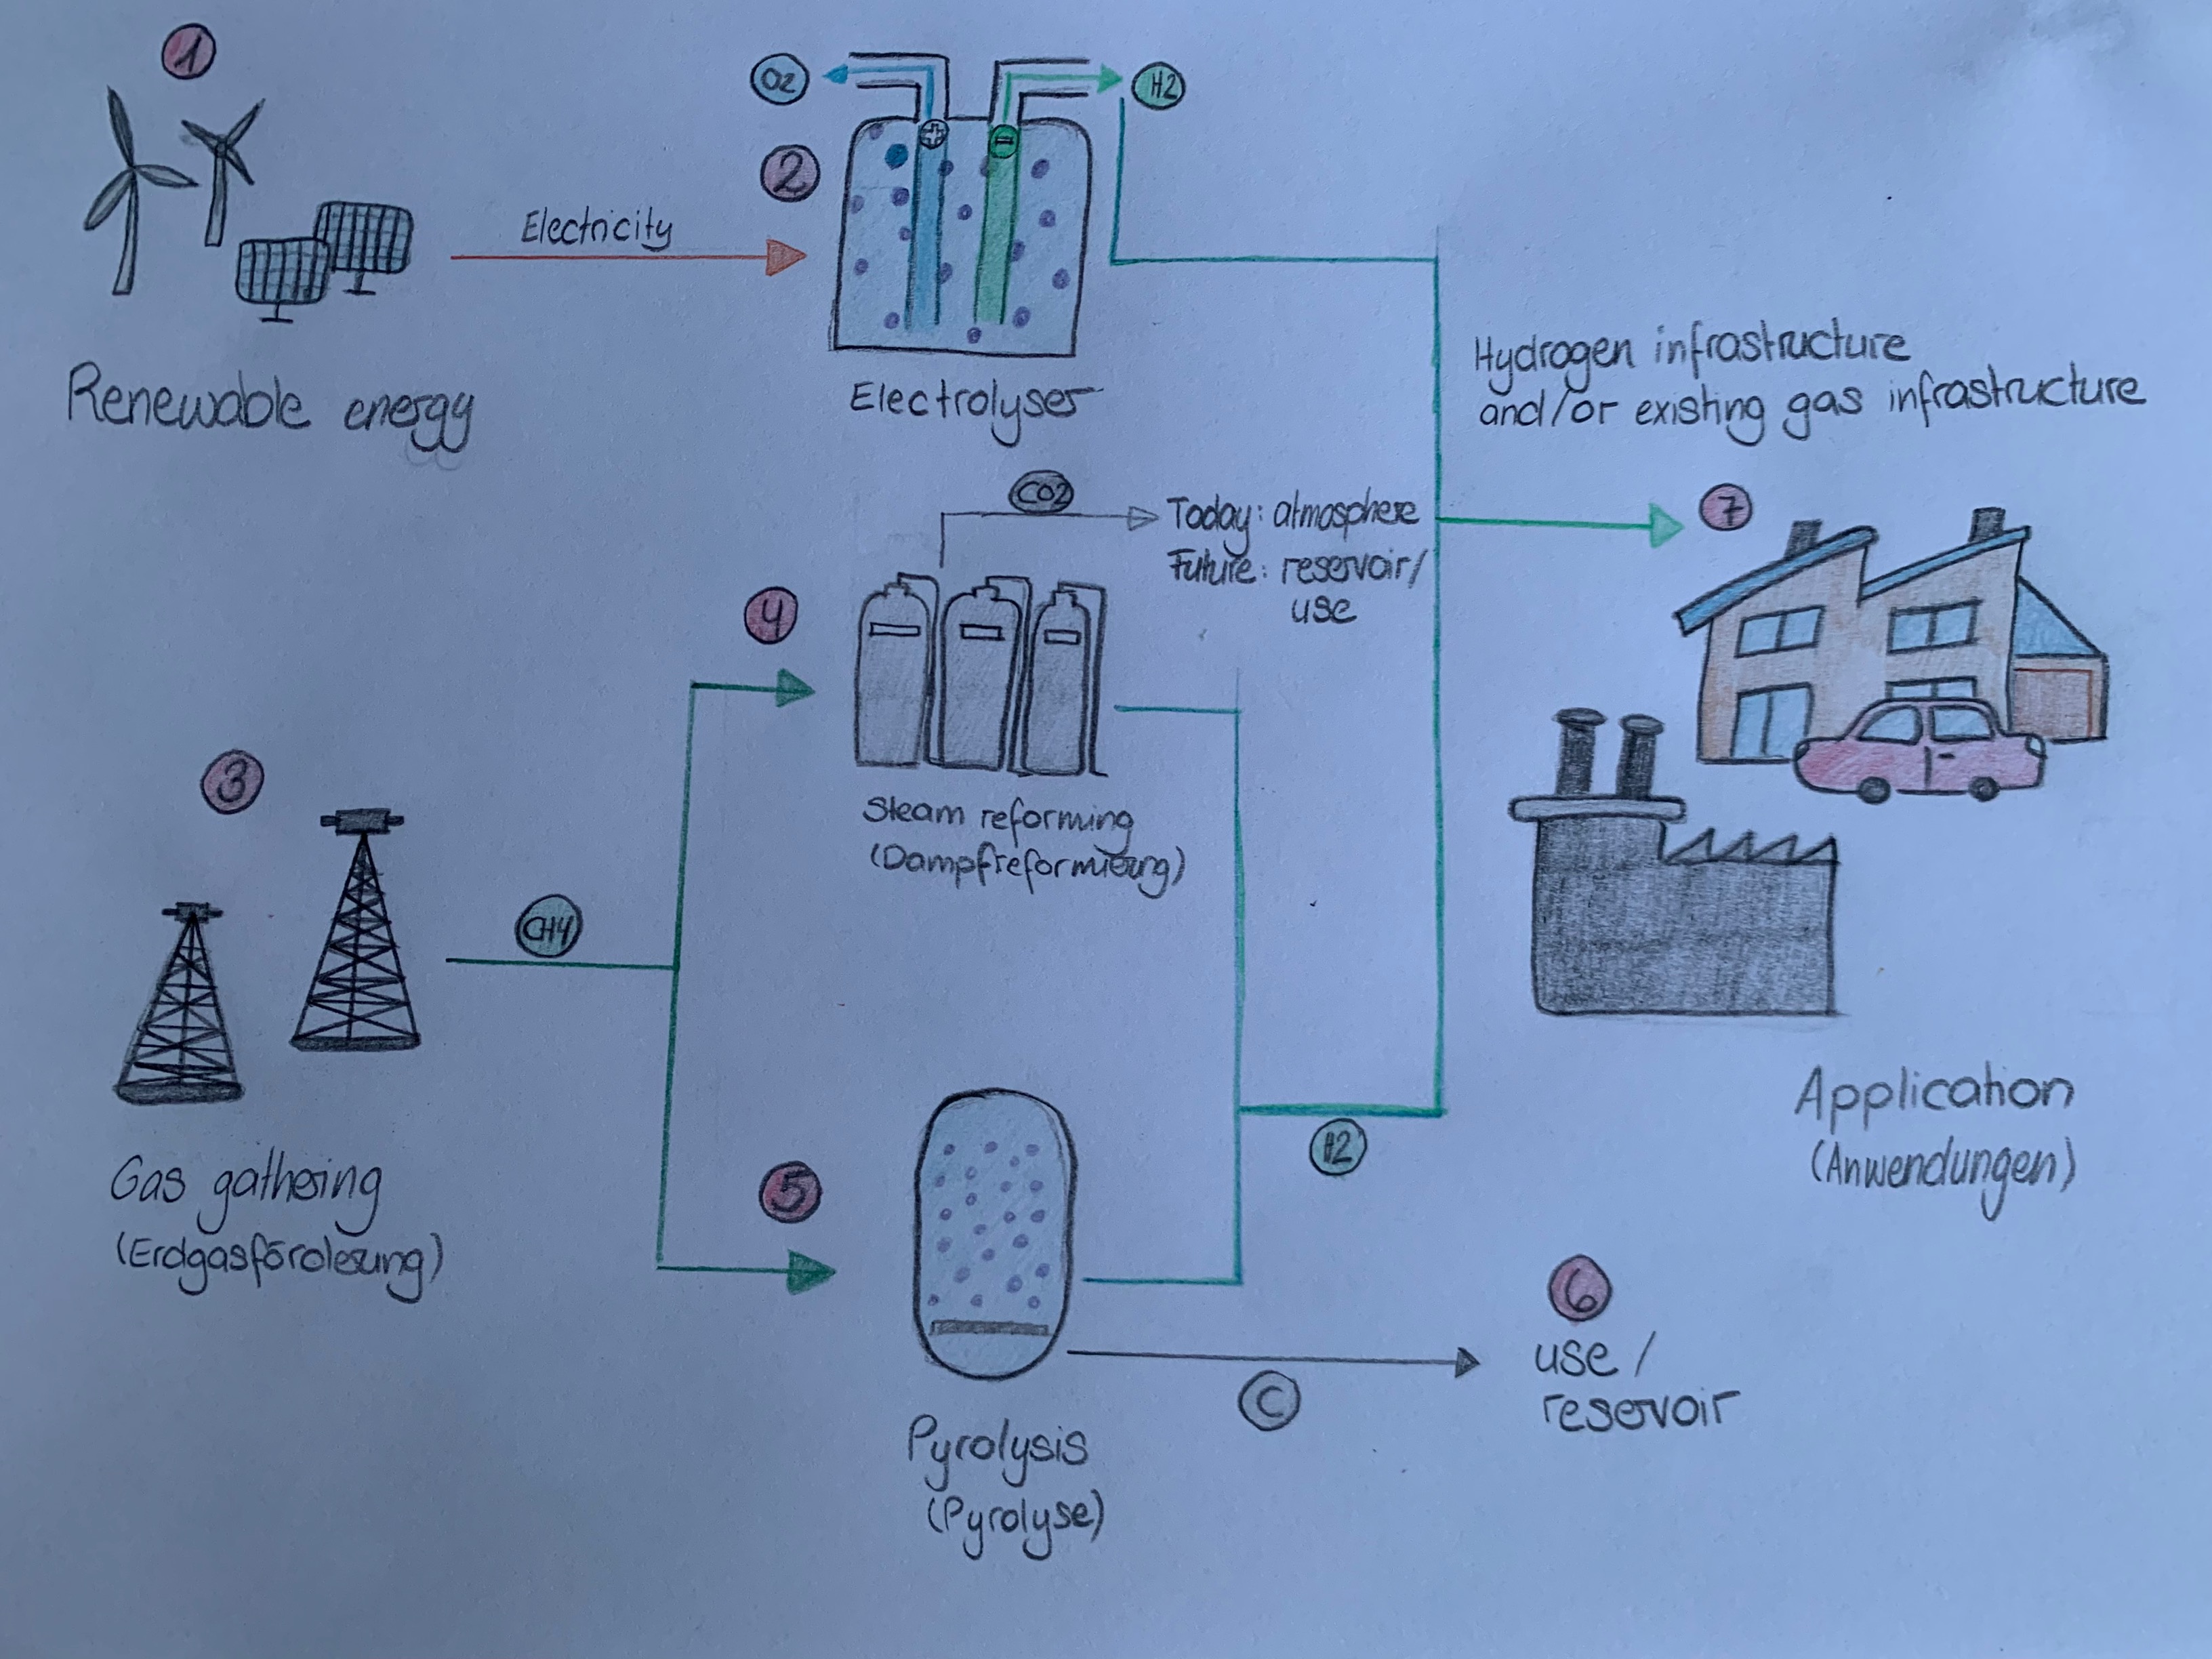 1
O2
H2
2
Electricity
Renewable energy
Electrolyser
Hydrogen infrastructure
and/or existing gas infrastructure
CO2
Today: atmosphere
Future: reservoir/
use
7
4
3
Steam reforming
(Dampfreformierung)
CH4
Gas gathering
(Erdgasförderung)
5
H2
Application
(Anwendungen)
6
use /
reservoir
C
Pyrolysis
(Pyrolyse)